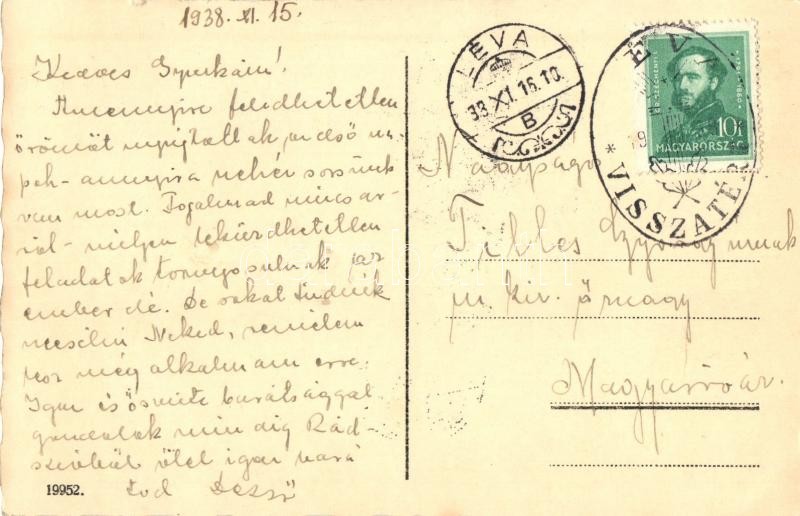 1938. XI. 15.
Kedves Gyurkám!
Amennyire feledhetetlen
örömöt nyujtottak az első na-
pok - annyira nehéz sorsunk
van most. Fogalmad nincs ar-
ról - milyen leküzdhetetlen
feladatok tornyosulnak az
ember elé. De sokat tudnék
mesélni Neked, remélem
lesz még alkalmam erre.
Igaz és őszinte barátsággal
gondolok mindig Rád -
szívből ölel igaz bará
tod Dezső
19952.
LÉVA
38.XI.16.10.
B
LÉVA
* VISSZATÉR
GR. SZÉCHENYI
10f
MAGYARORSZÁG
Nagyságos
Tilles György urnak
m. kir. őrnagy
Magyaróvár.